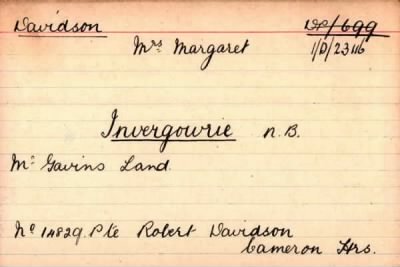 Davidson DP/699
Mrs Margaret 1/D/23116
Invergowrie N.B.
Mc Gavins Land.
No 14829. Pte Robert Davidson
Cameron Hrs.